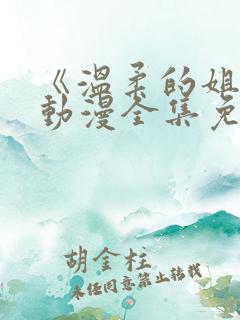 《温柔的姐
动漫全集免
胡金柱
未经同意禁止转载